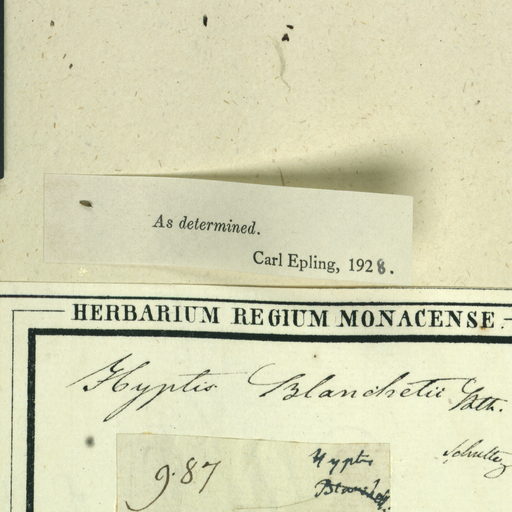 As determined.
Carl Epling, 1928.
HERBARIUM REGIUM MONACENSE.
Hyptis Blanchetii Bth.
987
Hyptis